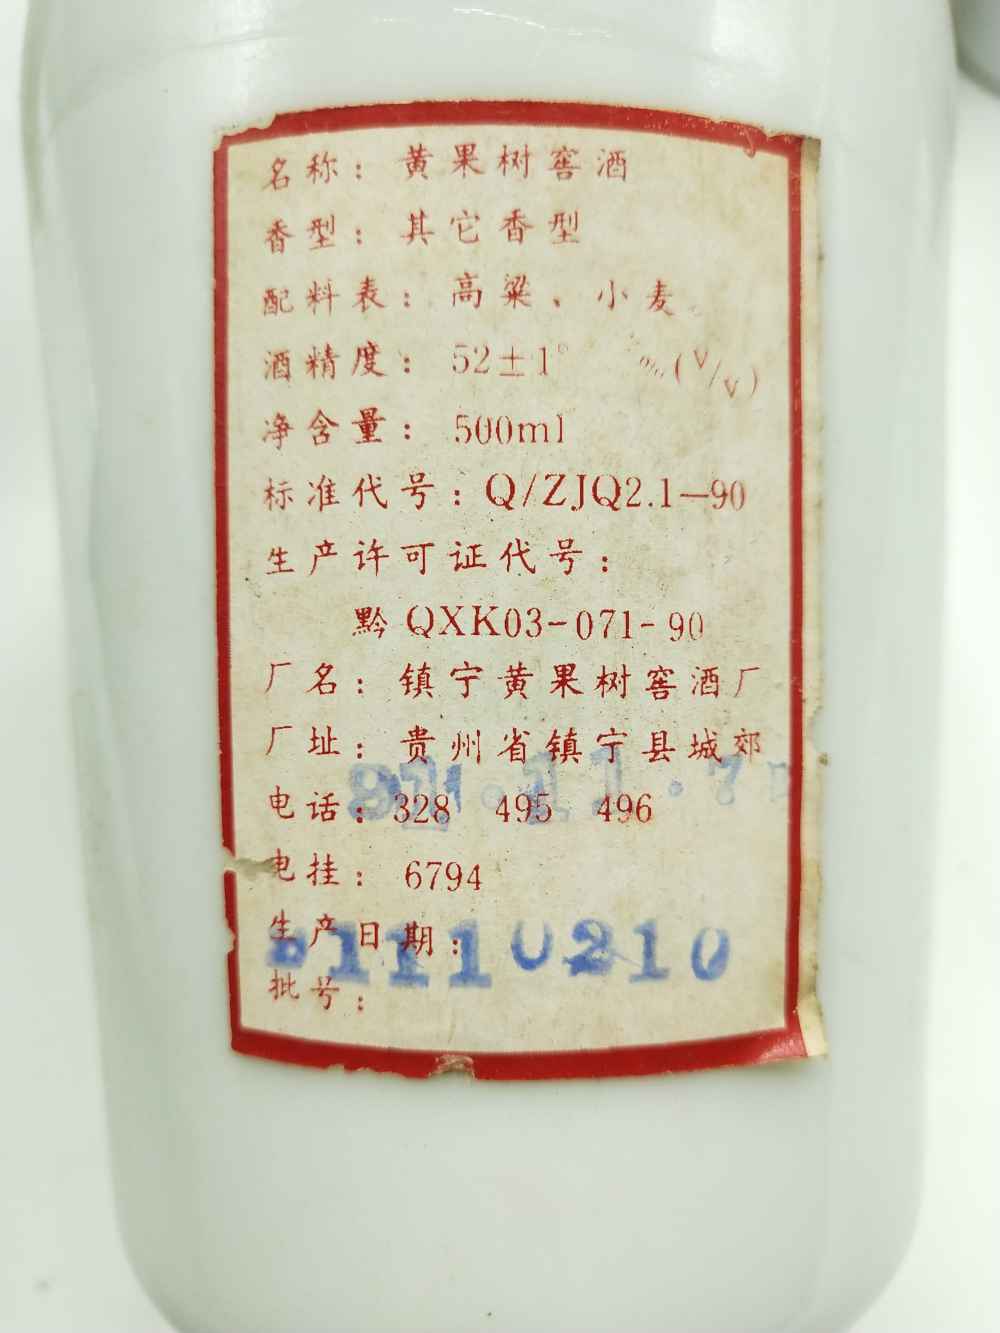 名称：黄果树窖酒
香型：其它香型
配料表：高粱、小麦。
酒精度：52±1° %(V/V)
净含量：500ml
标准代号：Q/ZJQ2.1—90
生产许可证代号：
黔QXK03-071-90
厂名：镇宁黄果树窖酒厂
厂址：贵州省镇宁县城郊
电话：328 495 496
电挂：6794
生产日期：
1110210
批号：